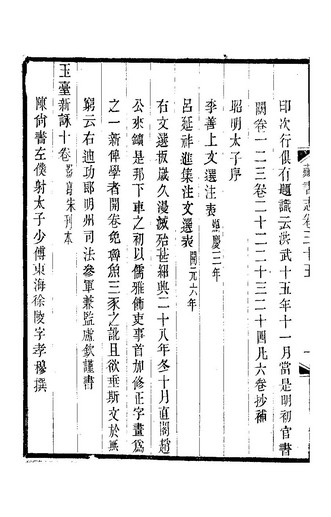 藏書志卷三十五
印次行俱有題識云洪武十五年十一月當是明初官書
闕卷一二三卷二十二二十三二十四凡六卷抄補
昭明太子序
李善上文選注表顯慶三年
呂延祚進集注文選表開元六年
右文選板歲久漫滅殆甚紹興二十八年冬十月直閣趙
公來鎮是邦下車之初以儒雅飾吏事首加修正字畫爲
之一新俾學者開卷免魯魚三豕之訛且欲垂斯文於無
窮云右迪功郎明州司法參軍兼監盧欽謹書
玉臺新詠十卷
陳尚書左僕射太子少傅東海徐陵字孝穆撰